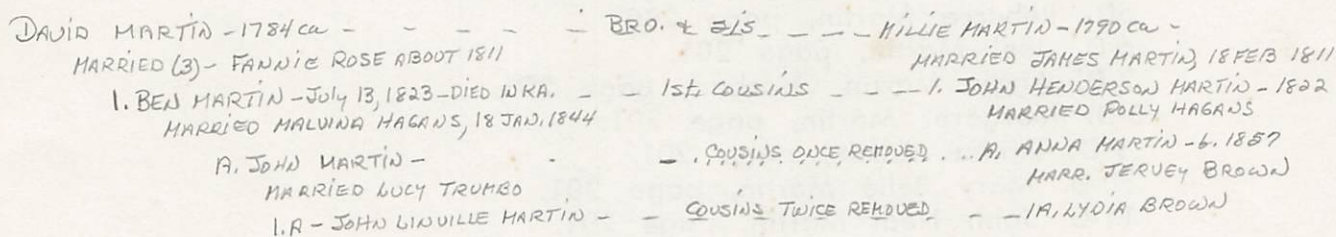 DAVID MARTIN - 1784 ca - - - - - BRO. & SIS - - - - MILLIE MARTIN - 1790 ca -
MARRIED (3) - FANNIE ROSE ABOUT 1811 MARRIED JAMES MARTIN, 18 FEB 1811
1. BEN MARTIN - July 13, 1823 - DIED IN KA. - - 1st. COUSINS - - - 1. JOHN HENDERSON MARTIN - 1822
MARRIED MALVINA HAGANS, 18 JAN. 1844 MARRIED POLLY HAGANS
A. JOHN MARTIN - - - . COUSINS ONCE REMOVED . . A. ANNA MARTIN - b. 1857
MARRIED LUCY TRUMBO MARR. JERVEY BROWN
1.A - JOHN LINVILLE MARTIN - - COUSINS TWICE REMOVED - - 1A. LYDIA BROWN